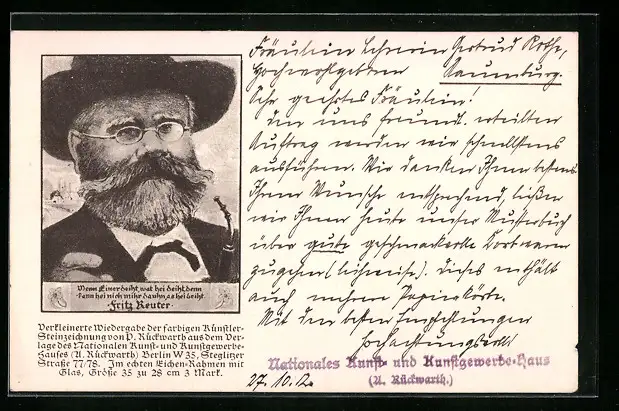 Wenn Einer deiht, wat hei deiht, denn
kann hei nich mihr dauhn, as hei deiht.
Fritz Reuter
Verkleinerte Wiedergabe der farbigen Künstler-
Steinzeichnung von P. Rückwarth aus dem Ver-
lage des Nationalen Kunst- und Kunstgewerbe-
hauses (A. Rückwarth) Berlin W 35, Steglitzer
Straße 77/78. Im echten Eichen-Rahmen mit
Glas, Größe 35 zu 28 cm 3 Mark.
Fräulein Lehrerin Gertrud Rothe,
Hochwohlgeboren Naumburg.
Sehr geehrtes Fräulein!
Den uns freundl. erteilten
Auftrag werden wir schnellstens
ausführen. Wir danken Ihnen bestens
Ihrem Wunsche entsprechend, ließen
wir Ihnen heute unser Musterbuch
über gute geschmackvolle Korbwaren
zugehen (leihweise). Dieses enthält
auch mehrere Papierkörbe.
Mit den besten Empfehlungen
Hochachtungsvoll!
Nationales Kunst- und Kunstgewerbe-Haus
(A. Rückwarth.)
27.10.12.